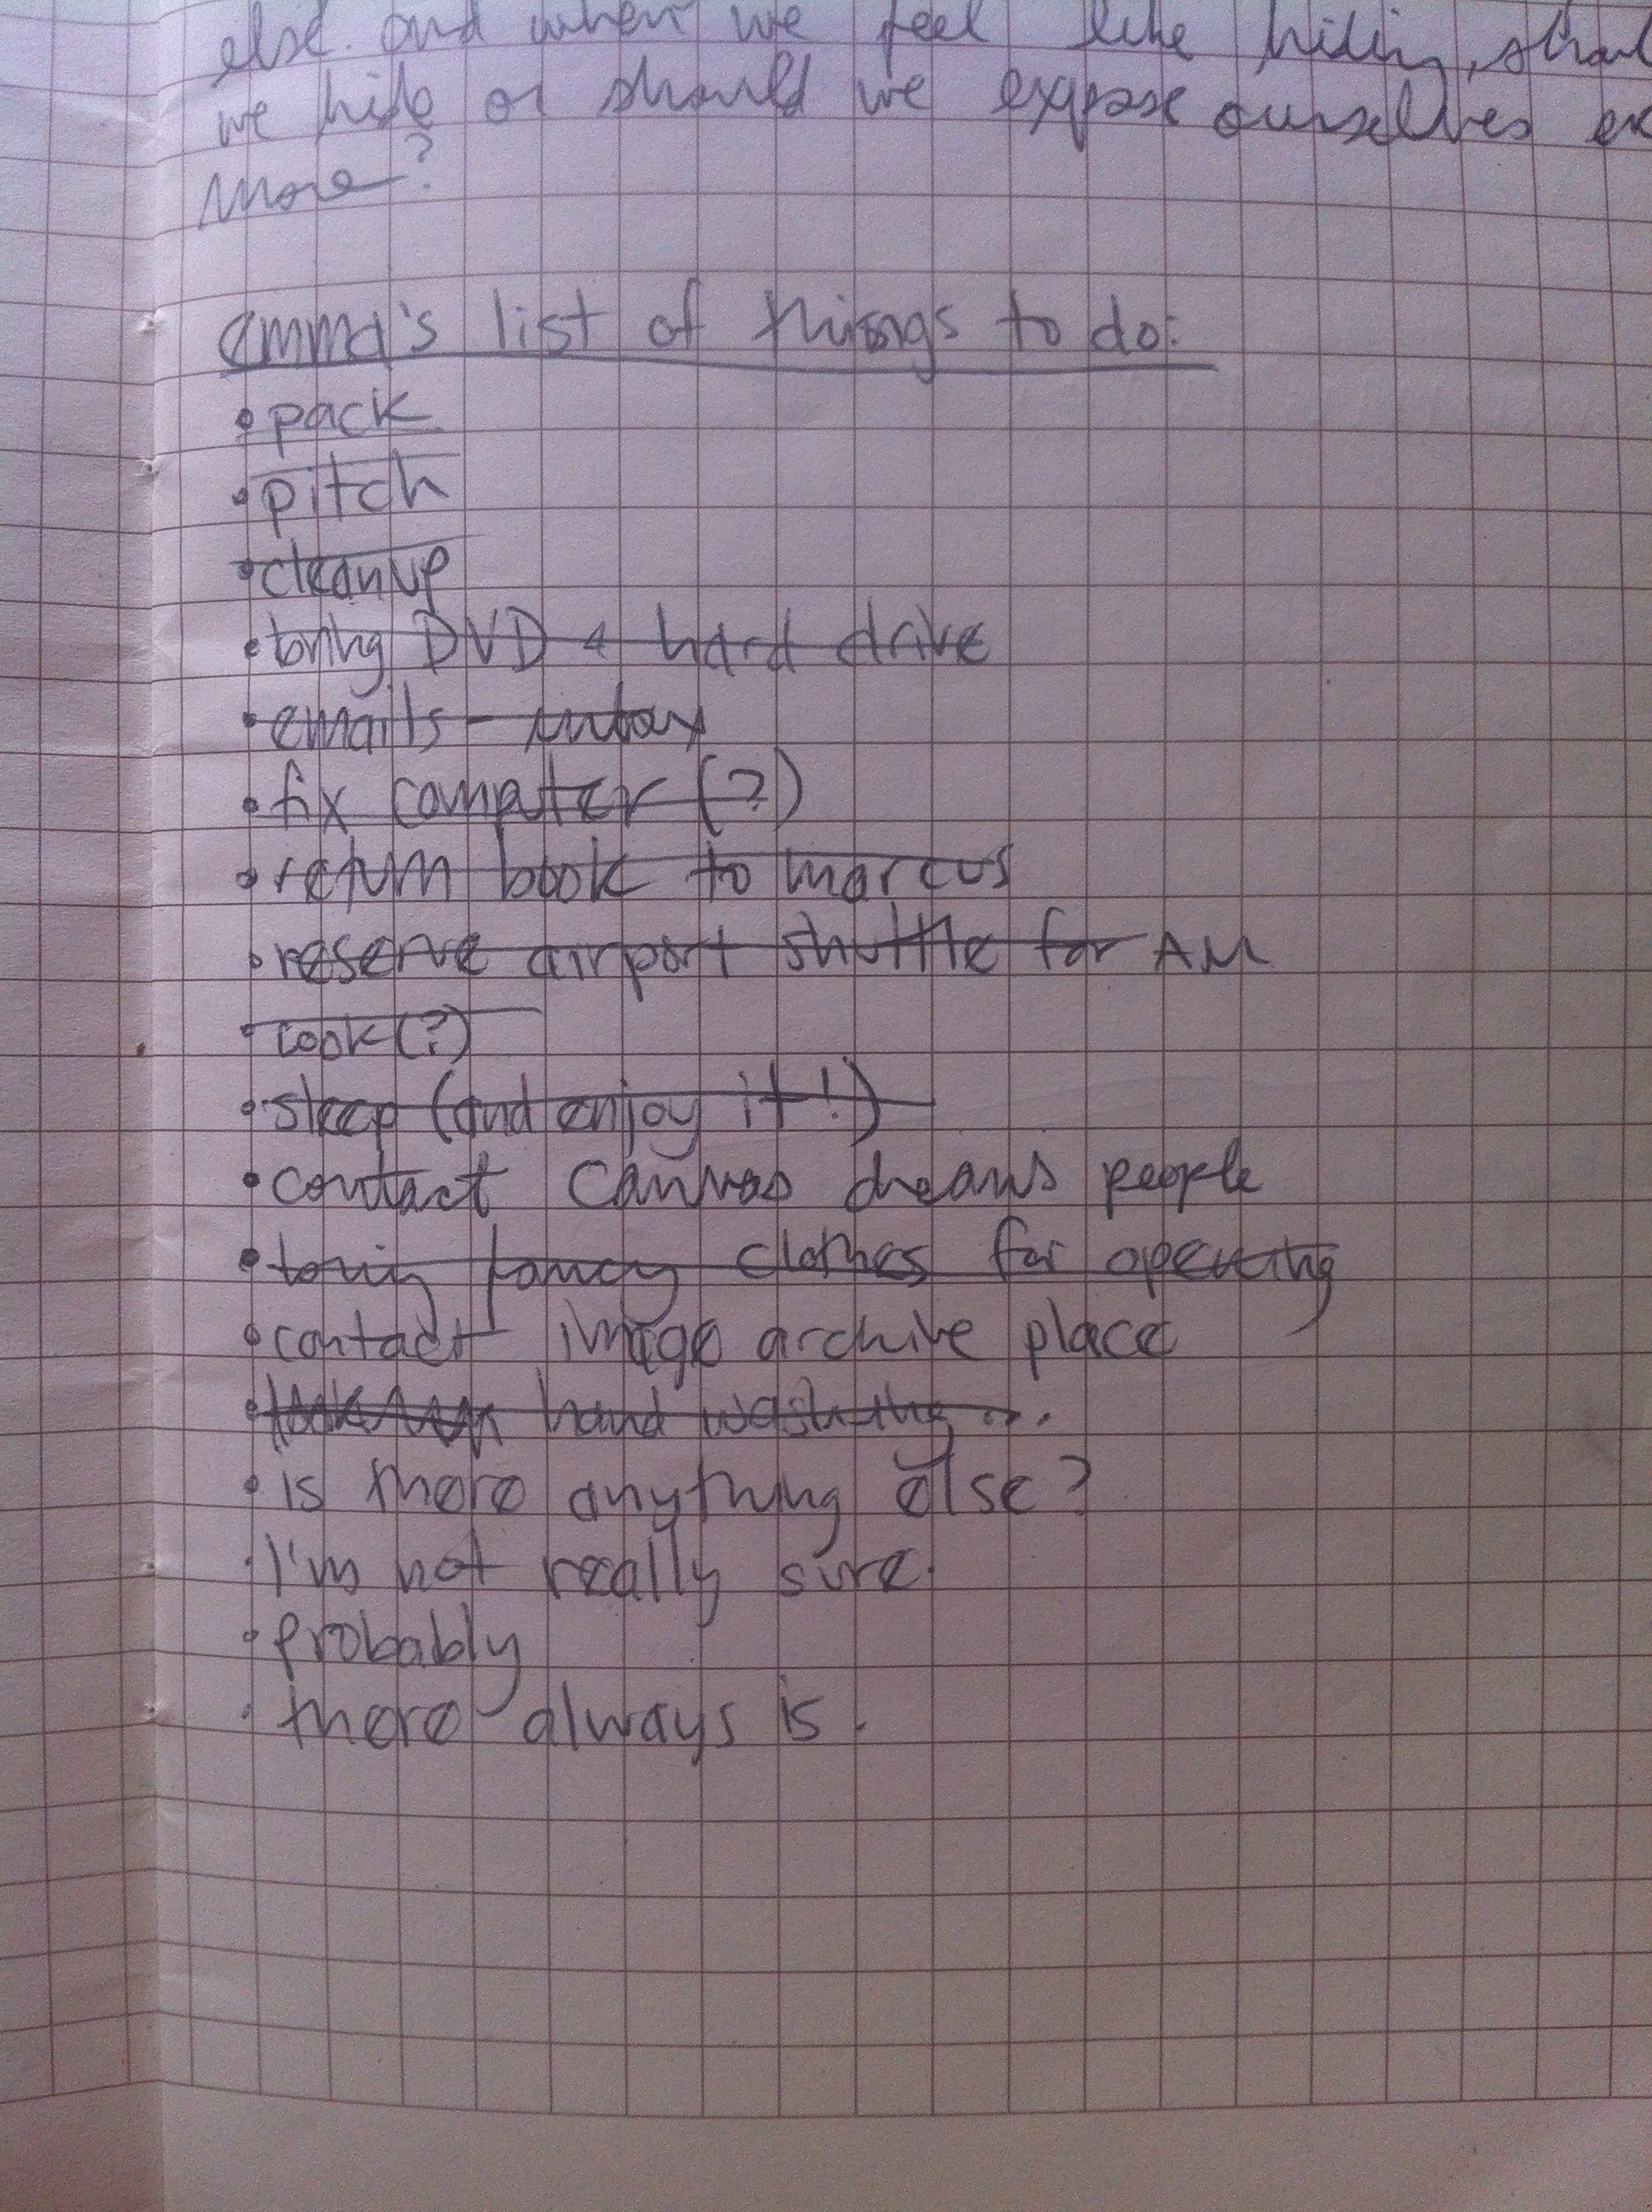 else. and when we feel like hiding, shoul
we hide or should we expose ourselves
more?
emma's list of things to do:
• pack
• pitch
• cleanup
• bring DVD & hard drive
• emails -
• fix computer (?)
• return book to marcus
• reserve airport shuttle for AM
• cook (?)
• sleep (and enjoy it!)
• contact canvas dreams people
• bring fancy clothes for opening
• contact image archive place
• hand washing...
• is there anything else?
• I'm not really sure.
• probably
• there always is.